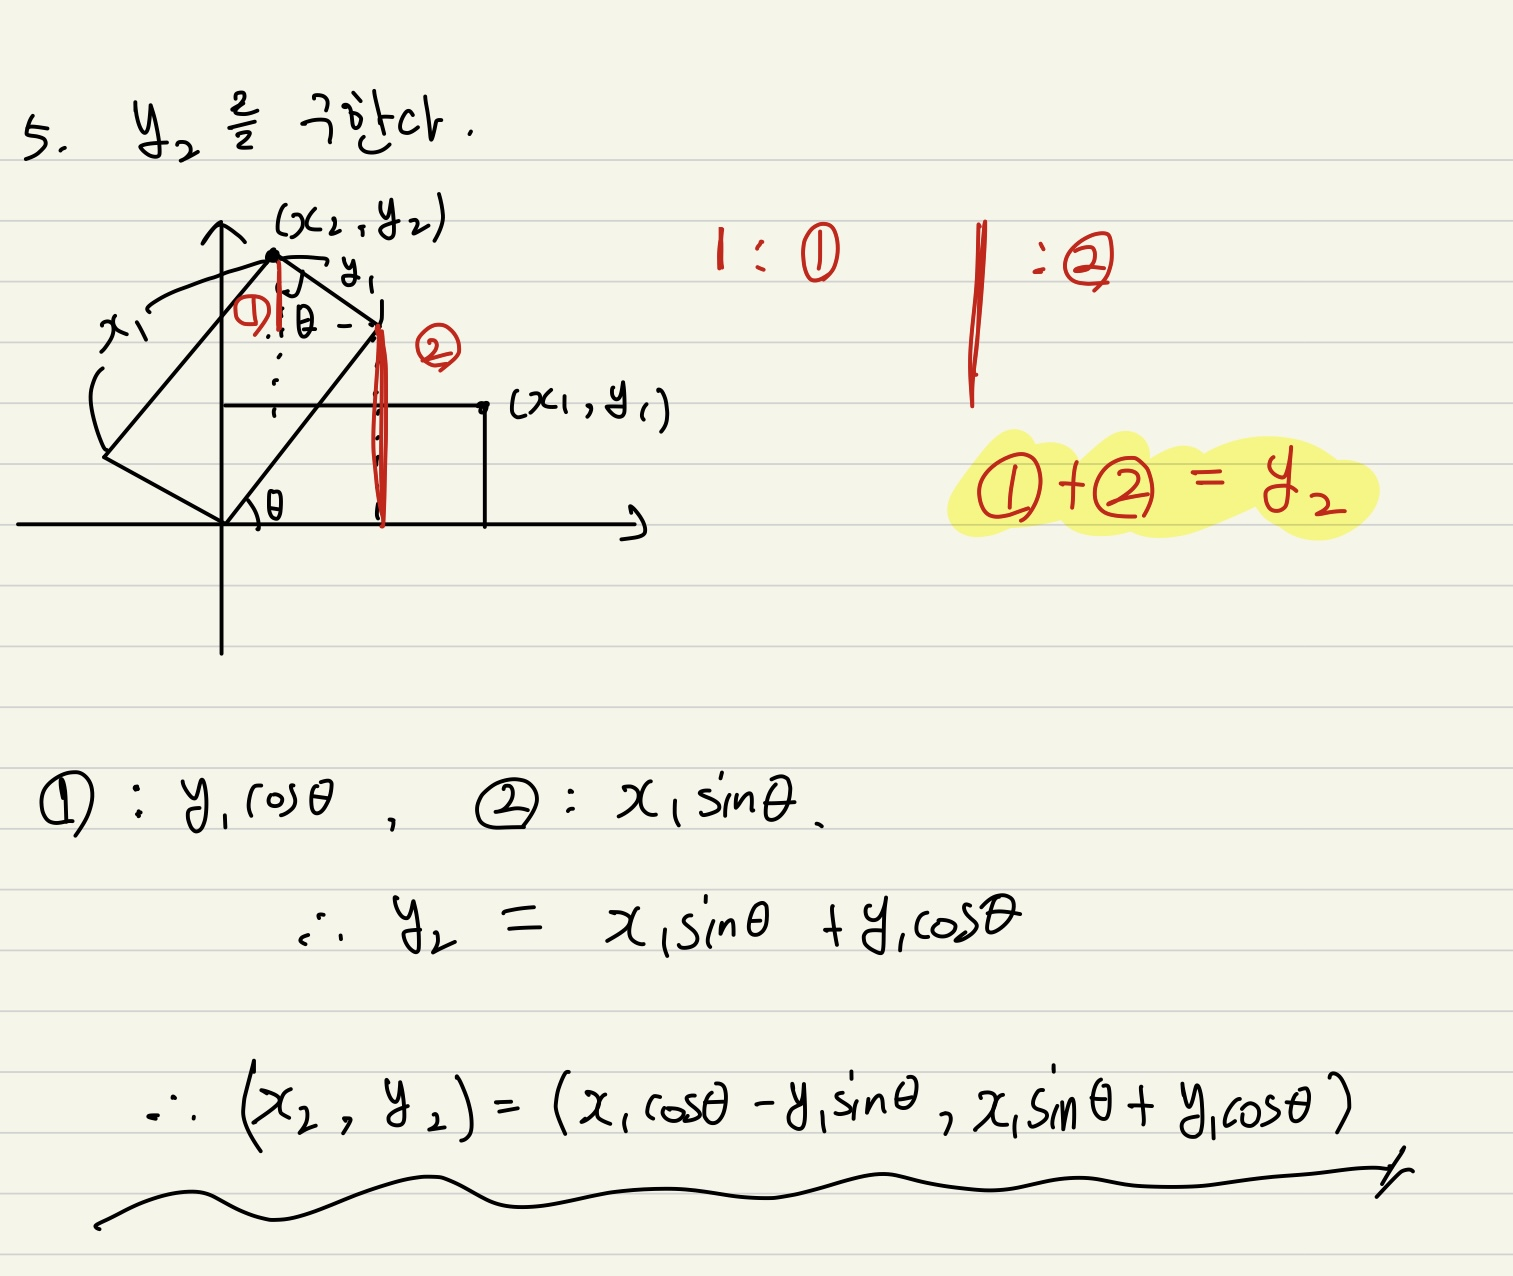 5. y₂ 를 구한다.
(x₂, y₂)
y₁
x₁
① θ
②
(x₁, y₁)
θ
| : ① | : ②
① + ② = y₂
① : y₁cosθ , ② : x₁sinθ.
∴ y₂ = x₁sinθ + y₁cosθ
∴ (x₂, y₂) = (x₁cosθ - y₁sinθ, x₁sinθ + y₁cosθ)